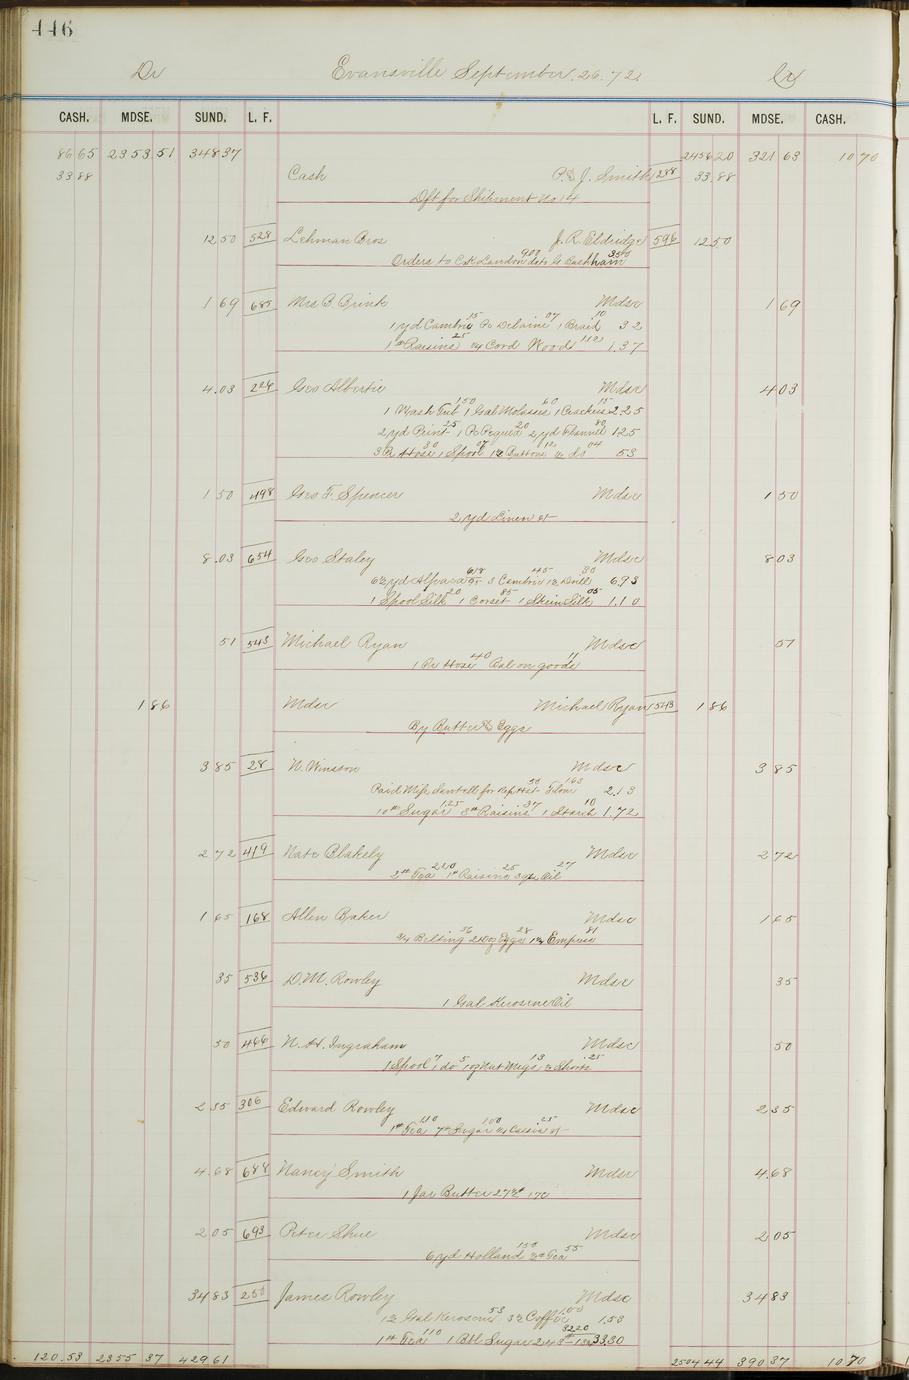 446
Dr Evansville September. 26. 72 Cr
CASH. MDSE. SUND. L. F. L. F. SUND. MDSE. CASH.
86 65 2353.51 348 37 2456 20 321 63 10 70
33 88 Cash P. & J. Smith 288 33.88
Dft for Shipment No 14
12 50 528 Lehman Bros J. R. Eldridge 596 12.50
Orders to C. K. Landon 900 do to G Backham 350
1 69 685 Mrs B. Brink Mdse 1 69
1 yd Cambric 15 Pc Delaine 07 1 Braid 10 32
1 # Raisins 25 1/4 Cord Wood 112 1.37
4.03 224 Geo Albertie Mdse 4 03
1 Wash Tub 150 1 Gal Molasses 60 1 Crackers 15 2.25
2 yd Print 25 1 Pc Pequea 20 2 yd Flannel 80 1.25
3 Pr Hose 30 1 Spool 07 1 1/2 Buttons 12 1/2 do 04 53
1 50 498 Geo F. Spencer Mdse 1 50
2 yd Linen
8.03 654 Geo Staley Mdse 8 03
6 1/2 yd Alpaca 95 618 3 Cambric 45 1 1/2 Drill 30 6.93
1 Spool Silk 20 1 Corset 85 1 Skein Silk 05 1.10
51 543 Michael Ryan Mdse 51
1 Pr Hose 40 Bal on goods 11
1 86 Mdse Michael Ryan 543 1 86
By Butter & Eggs
3 85 28 N. Winsson Mdse 3 85
Paid Miss for Hat 50 163 2.13
10 # Sugar 125 3 # Raisins 37 1 Starch 10 1.72
2 72 419 Nate Blakely Mdse 2 72
2 # Tea 220 1 # Raisins 25 Oil 27
1 65 168 Allen Baker Mdse 1 65
3/4 Belting 56 2 Doz Eggs 28 81
35 536 D. M. Rowley Mdse 35
1 Gal Kerosene Oil
50 466 N. H. Ingraham Mdse 50
1 Spool 7 1 do 5 1 oz Nut Megs 13 Shorts 25
2 35 306 Edward Rowley Mdse 2 35
1 # Tea 110 7 # Sugar 100 25
4.68 688 Nancy Smith Mdse 4.68
1 Jar Butter 27 1/2 # 17c
2 05 693 Peter Shue Mdse 2 05
6 yd Holland 150 1/2 # Tea 55
34 83 250 James Rowley Mdse 34 83
1 1/2 Gal Kerosene 53 3 1/2 Coffee 1.00 1.53
1 # Tea 110 1 Bbl Sugar 32.20 33.30
120.53 2355 37 429.61 2504.44 390 37 10 70